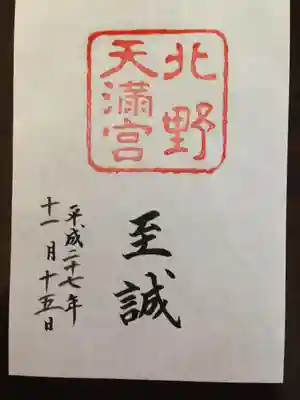 北野
天満宮
至誠
平成二十七年
十一月十五日